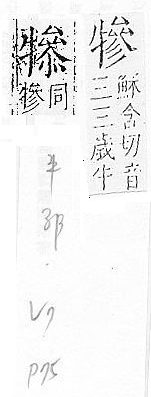 犙
穌含切音
三三歲牛
同
犙
牛部 . V7 P75